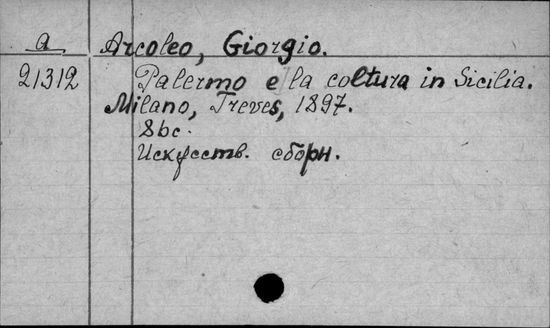 a
Arcoleo, Giorgio.
21312
Palermo e la coltura in Sicilia.
Milano, Treves, 1897.
8bc.
Искусств. сборн.